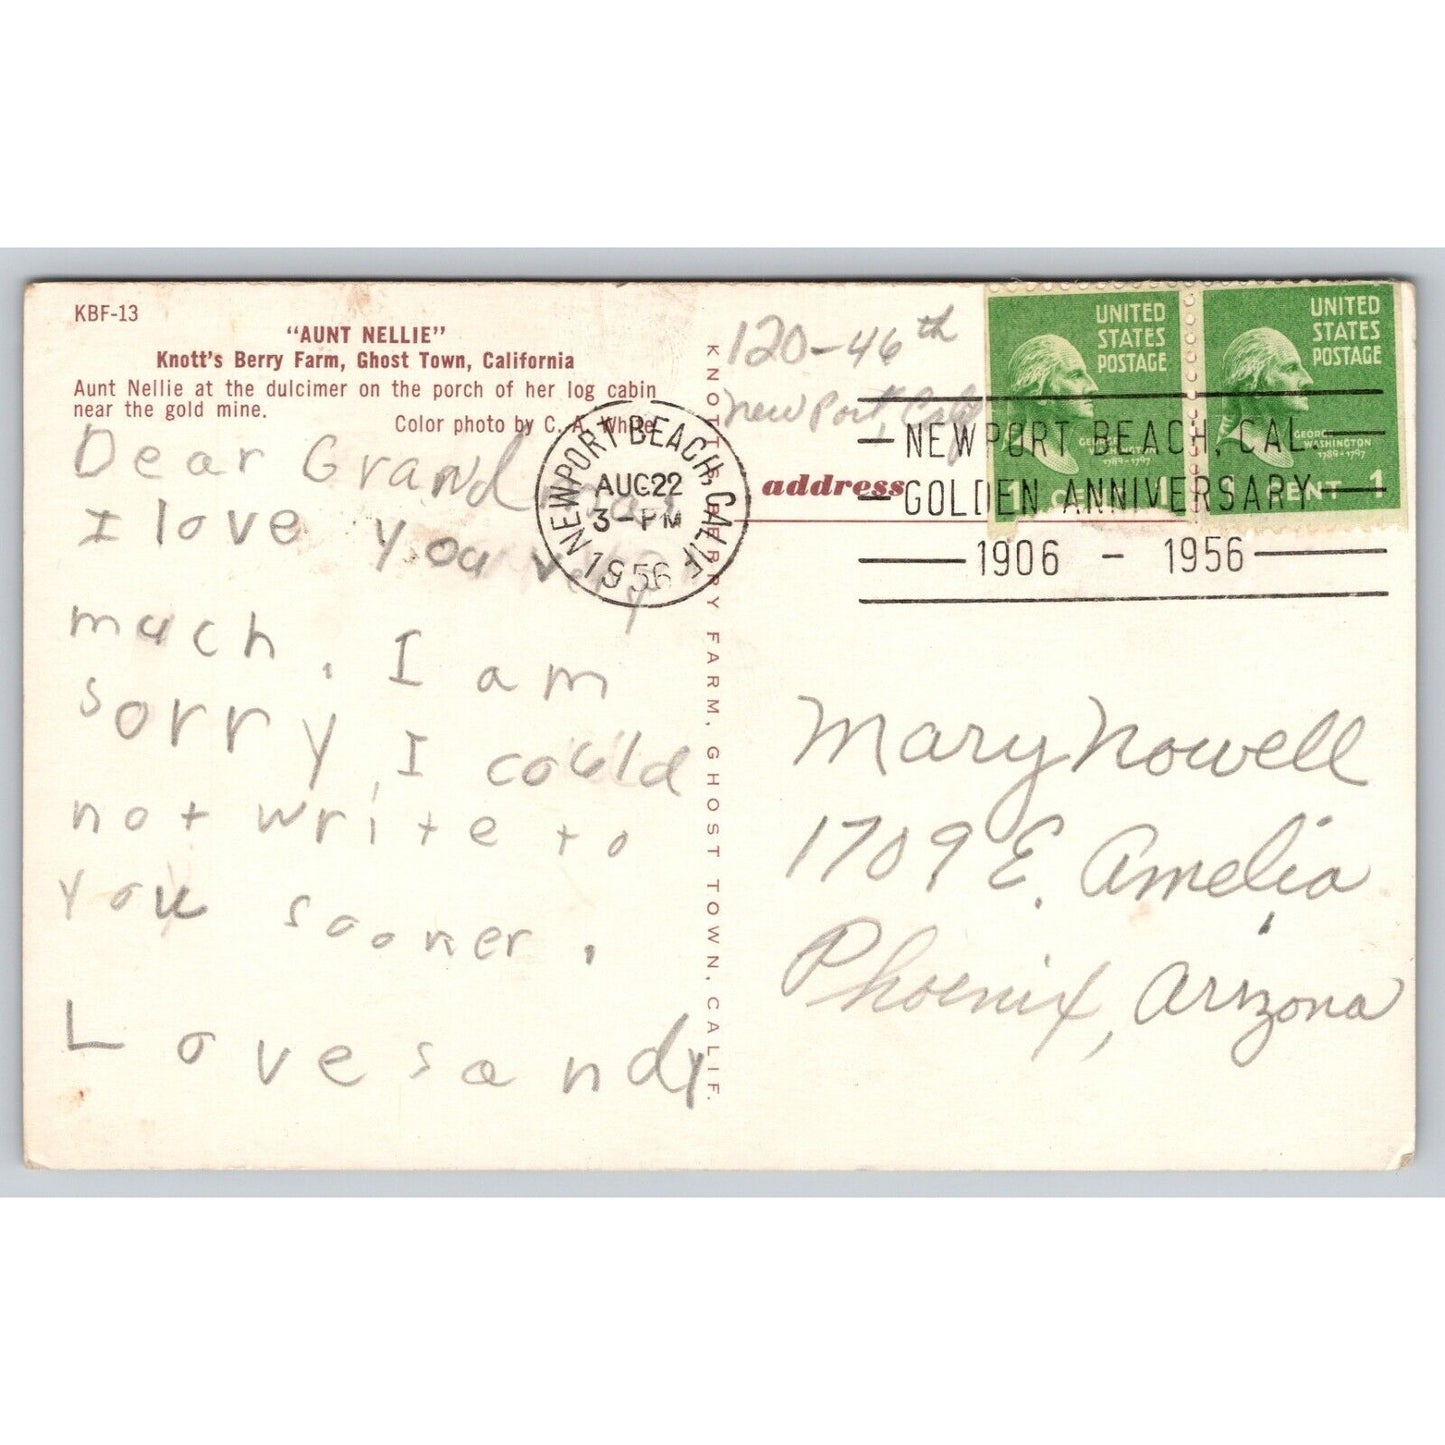 KBF-13
"AUNT NELLIE"
Knott's Berry Farm, Ghost Town, California
Aunt Nellie at the dulcimer on the porch of her log cabin
near the gold mine.
Color photo by C. A. White
Dear Grandma
I love you very
much. I am
sorry I could
not write to
you sooner.
Love sandy
KNOTT'S BERRY FARM, GHOST TOWN, CALIF.
NEWPORT BEACH, CALIF.
AUG 22
3-PM
1956
120-46th
New Port, Calif
address
UNITED
STATES
POSTAGE
GEORGE
WASHINGTON
1789-1797
1 CENT 1
UNITED
STATES
POSTAGE
GEORGE
WASHINGTON
1789-1797
1 CENT 1
NEWPORT BEACH, CAL.
GOLDEN ANNIVERSARY
1906 - 1956
Mary Nowell
1709 E. Amelia
Phoenix, Arizona